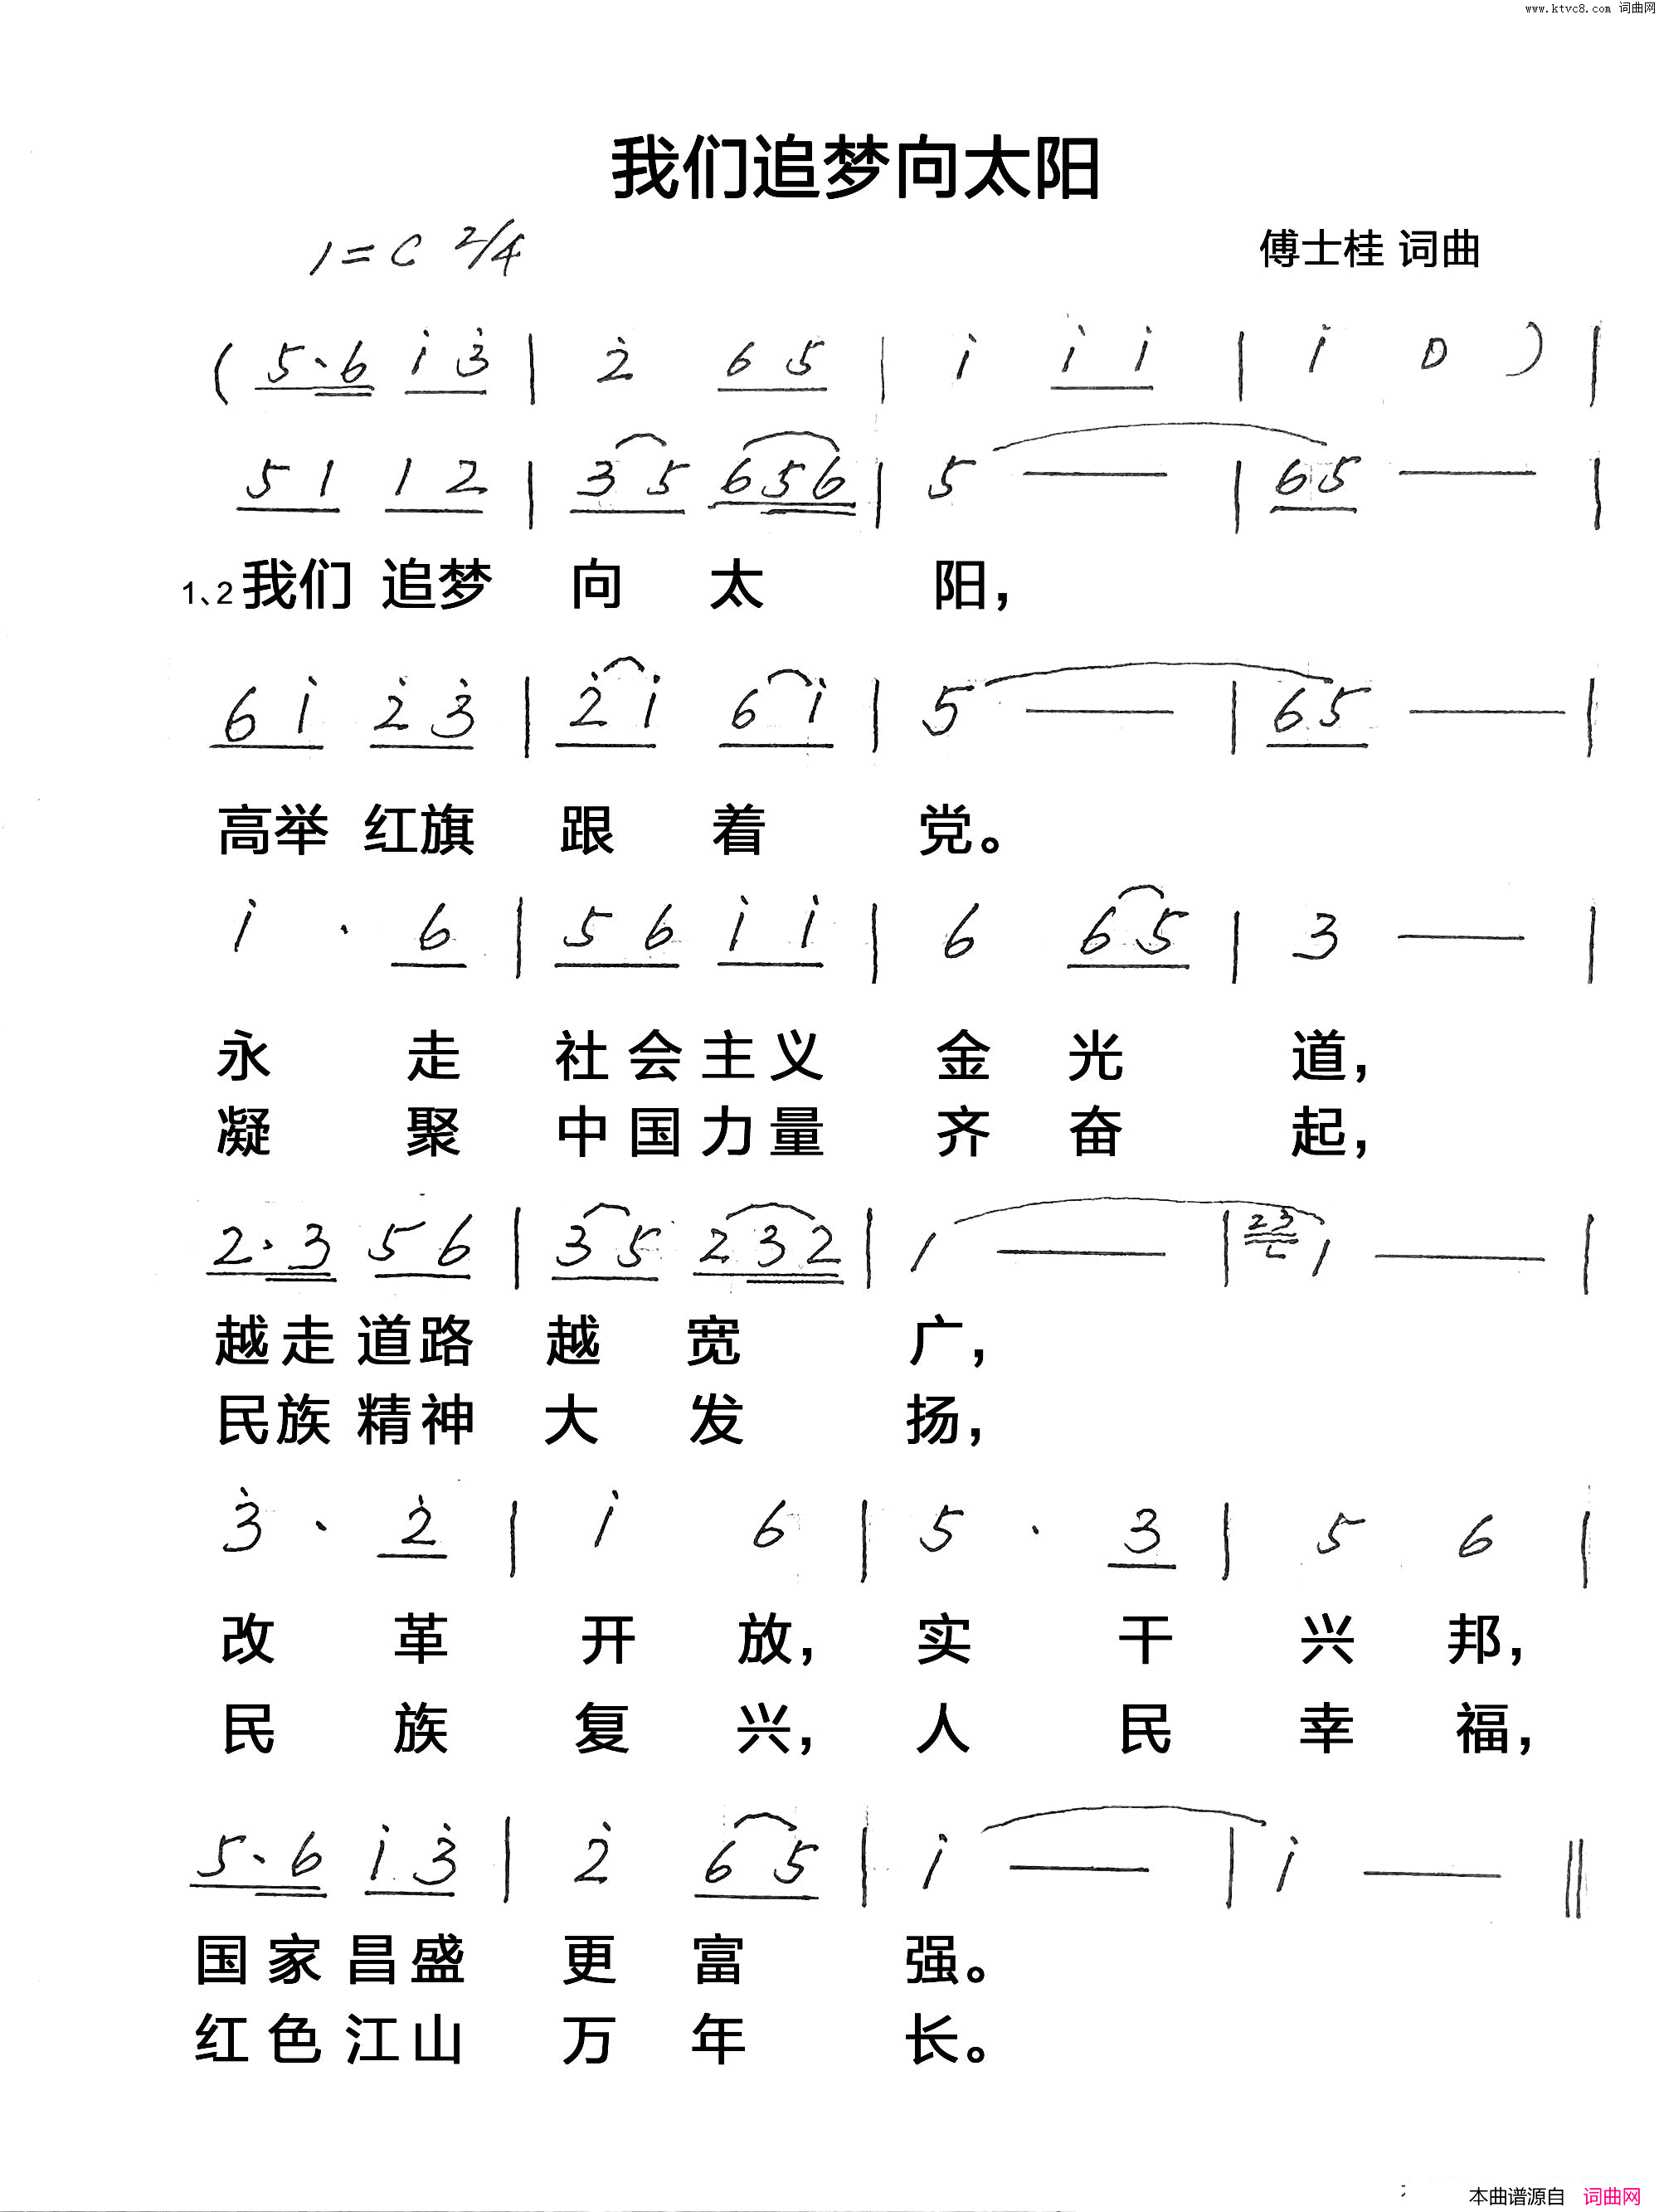 www.ktvc8.com 词曲网
我们追梦向太阳
1=C 2/4
傅士桂 词曲
( 5·6 i 3̇ | 2̇ 6 5 | i i i | i 0 ) |
5 1 1 2 | 3 5 6 5 6 | 5 — | 6 5 — |
1、2我们 追梦 向 太 阳，
6 i 2̇ 3̇ | 2̇ i 6 i | 5 — | 6 5 — |
高举 红旗 跟 着 党。
i · 6 | 5 6 i i | 6 6 5 | 3 — |
永 走 社会主义 金 光 道，
凝 聚 中国力量 齐 奋 起，
2·3 5 6 | 3 5 2 3 2 | 1 — | 2 3 1 — |
越走 道路 越 宽 广，
民族 精神 大 发 扬，
3̇ · 2̇ | i 6 | 5 · 3 | 5 6 |
改 革 开 放， 实 干 兴 邦，
民 族 复 兴， 人 民 幸 福，
5·6 i 3̇ | 2̇ 6 5 | i — | i — ‖
国家昌盛 更 富 强。
红色江山 万 年 长。
本曲谱源自 词曲网